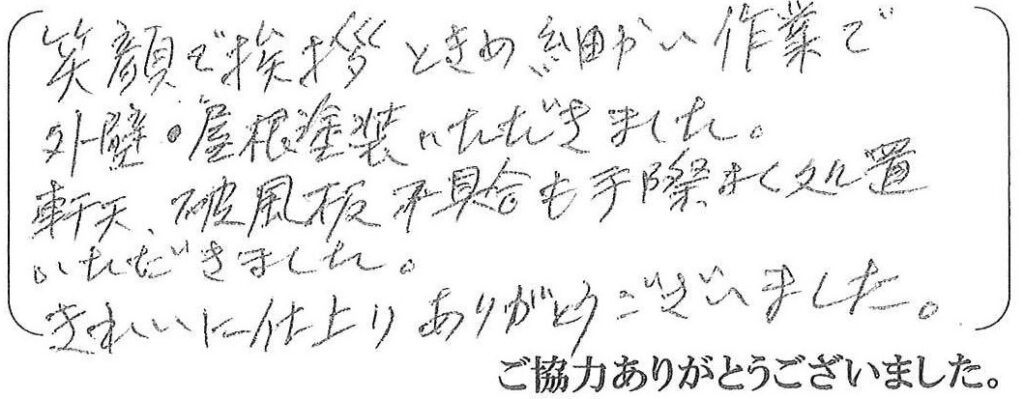 笑顔で挨拶ときめ細かい作業で
外壁・屋根塗装いただきました。
軒天、破風板不具合も手際よく処置
いただきました。
きれいに仕上りありがとうございました。
ご協力ありがとうございました。